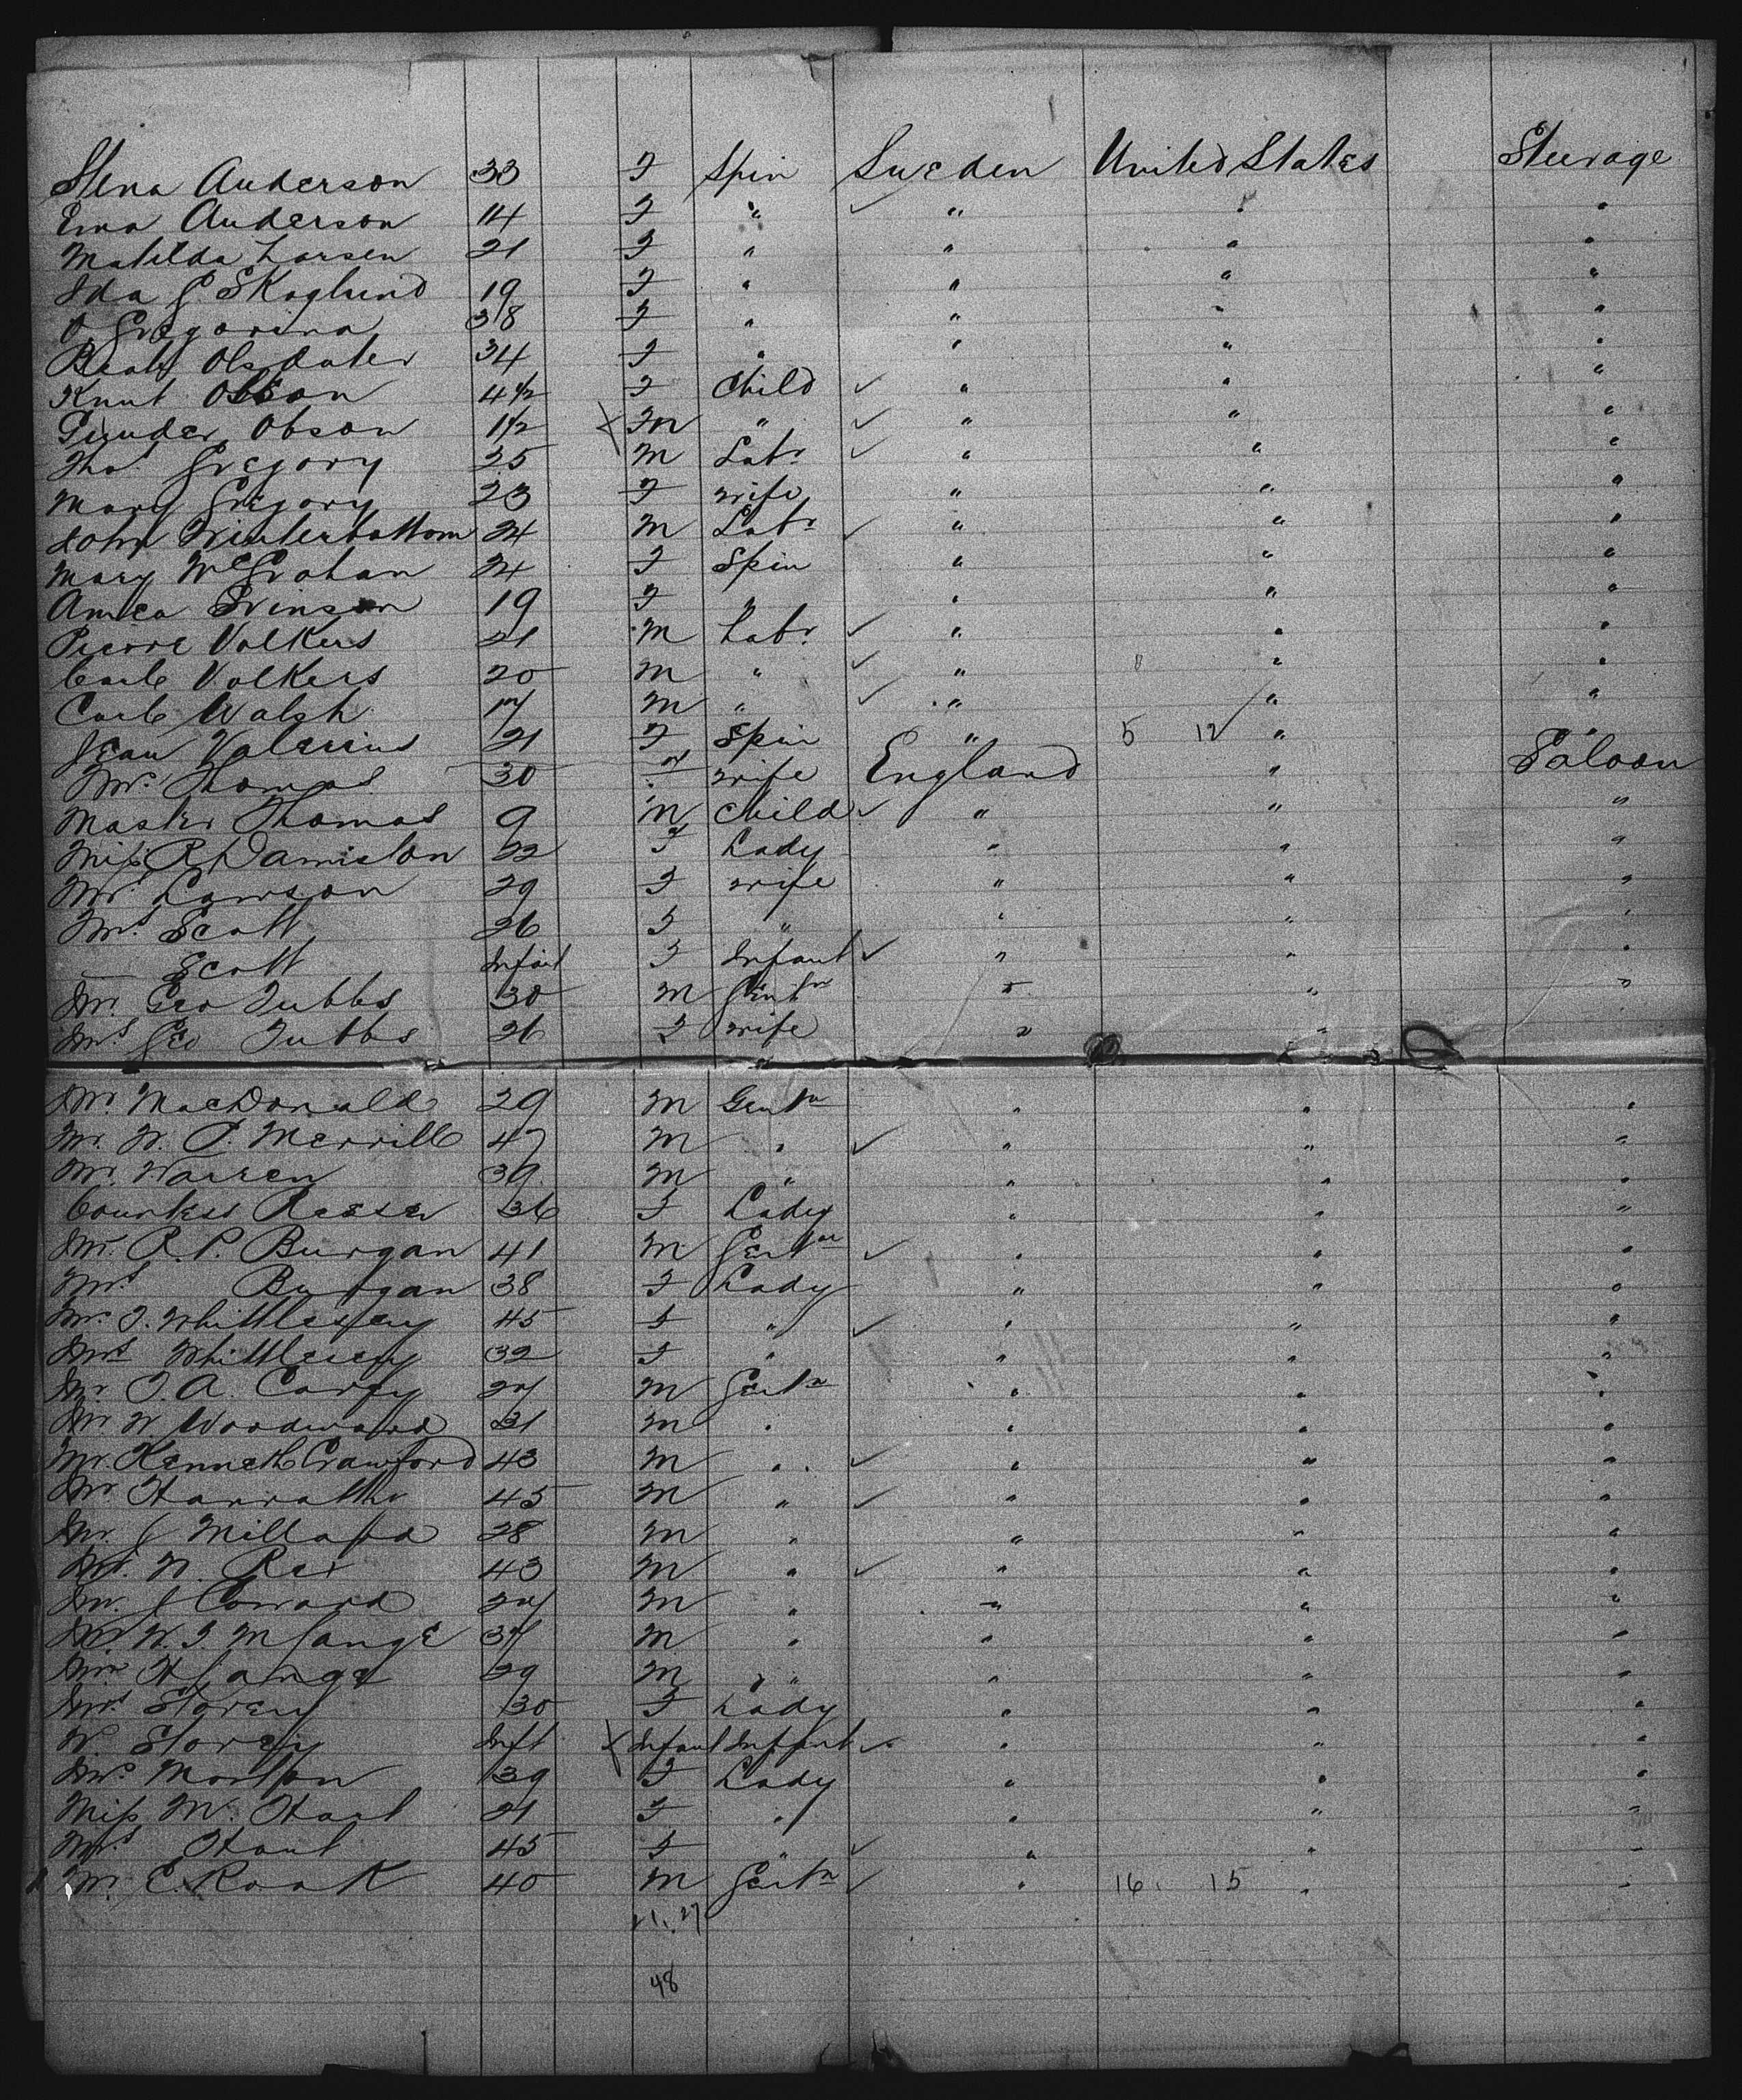 Stena Anderson 33 F Spin Sweden United States Steerage
Ema Anderson 14 F " " " "
Matilda Larsen 21 F " " " "
Ida G. Skoglund 19 F " " " "
O. Gregorina 38 F " " " "
Olsdater 34 F " " " "
Knut Olson 4 1/2 F Child " " "
Obson 1 1/2 M " " " "
Thos. Gregory 25 M Labr " " "
Mary Gregory 23 F wife " " "
John Winterbottom 24 M Labr " " "
Mary McGrahan 24 F Spin " " "
Svinson 19 F " " " "
Pierre Volkers 21 M Labr " " "
Carl Volkers 20 M " " " "
Carl Walsh 17 M " " " "
Jean Valerius 21 F Spin " 5 12 " "
Mrs. Thomas 30 F wife England " Saloon
Master Thomas 9 M Child " " "
Miss R Damiston 22 F Lady " " "
Mrs Lawson 29 F wife " " "
Mrs Scott 26 F " " " "
— Scott Infant F Infant " " "
Mr. Geo Tubbs 30 M Gentn " " "
Mrs Geo Tubbs 26 F wife " "
Mr MacDonald 29 M Gentn " " "
Mr. W. P. Merrill 47 M " " " "
Mr. Warren 39 M " " " "
Countess 36 F Lady " " "
Mr. R. P. Burgan 41 M Gentn " " "
Mrs Burgan 38 F Lady " " "
J. Whittlesey 45 F " " " "
Whittlesey 32 F " " " "
Mr J. A. 27 M Gentn " " "
Mr W. Woodward 31 M " " " "
Mr. Kenneth Crawford 43 M " " " "
Mr 45 M " " " "
Mr. J Millard 28 M " " " "
Mr. W. 43 M " " " "
Mr. J Coward 27 M " " " "
37 M " " " "
29 M " " " "
Mrs Storey 30 F Lady " " "
W. Storey Inft Infant Infant " " "
Mrs 39 F Lady " " "
Miss M. Hart 21 F " " " "
Mrs 45 F " " " "
Mr. E. Rook 40 M Gentn " 16. 15 " "
21. 27
48